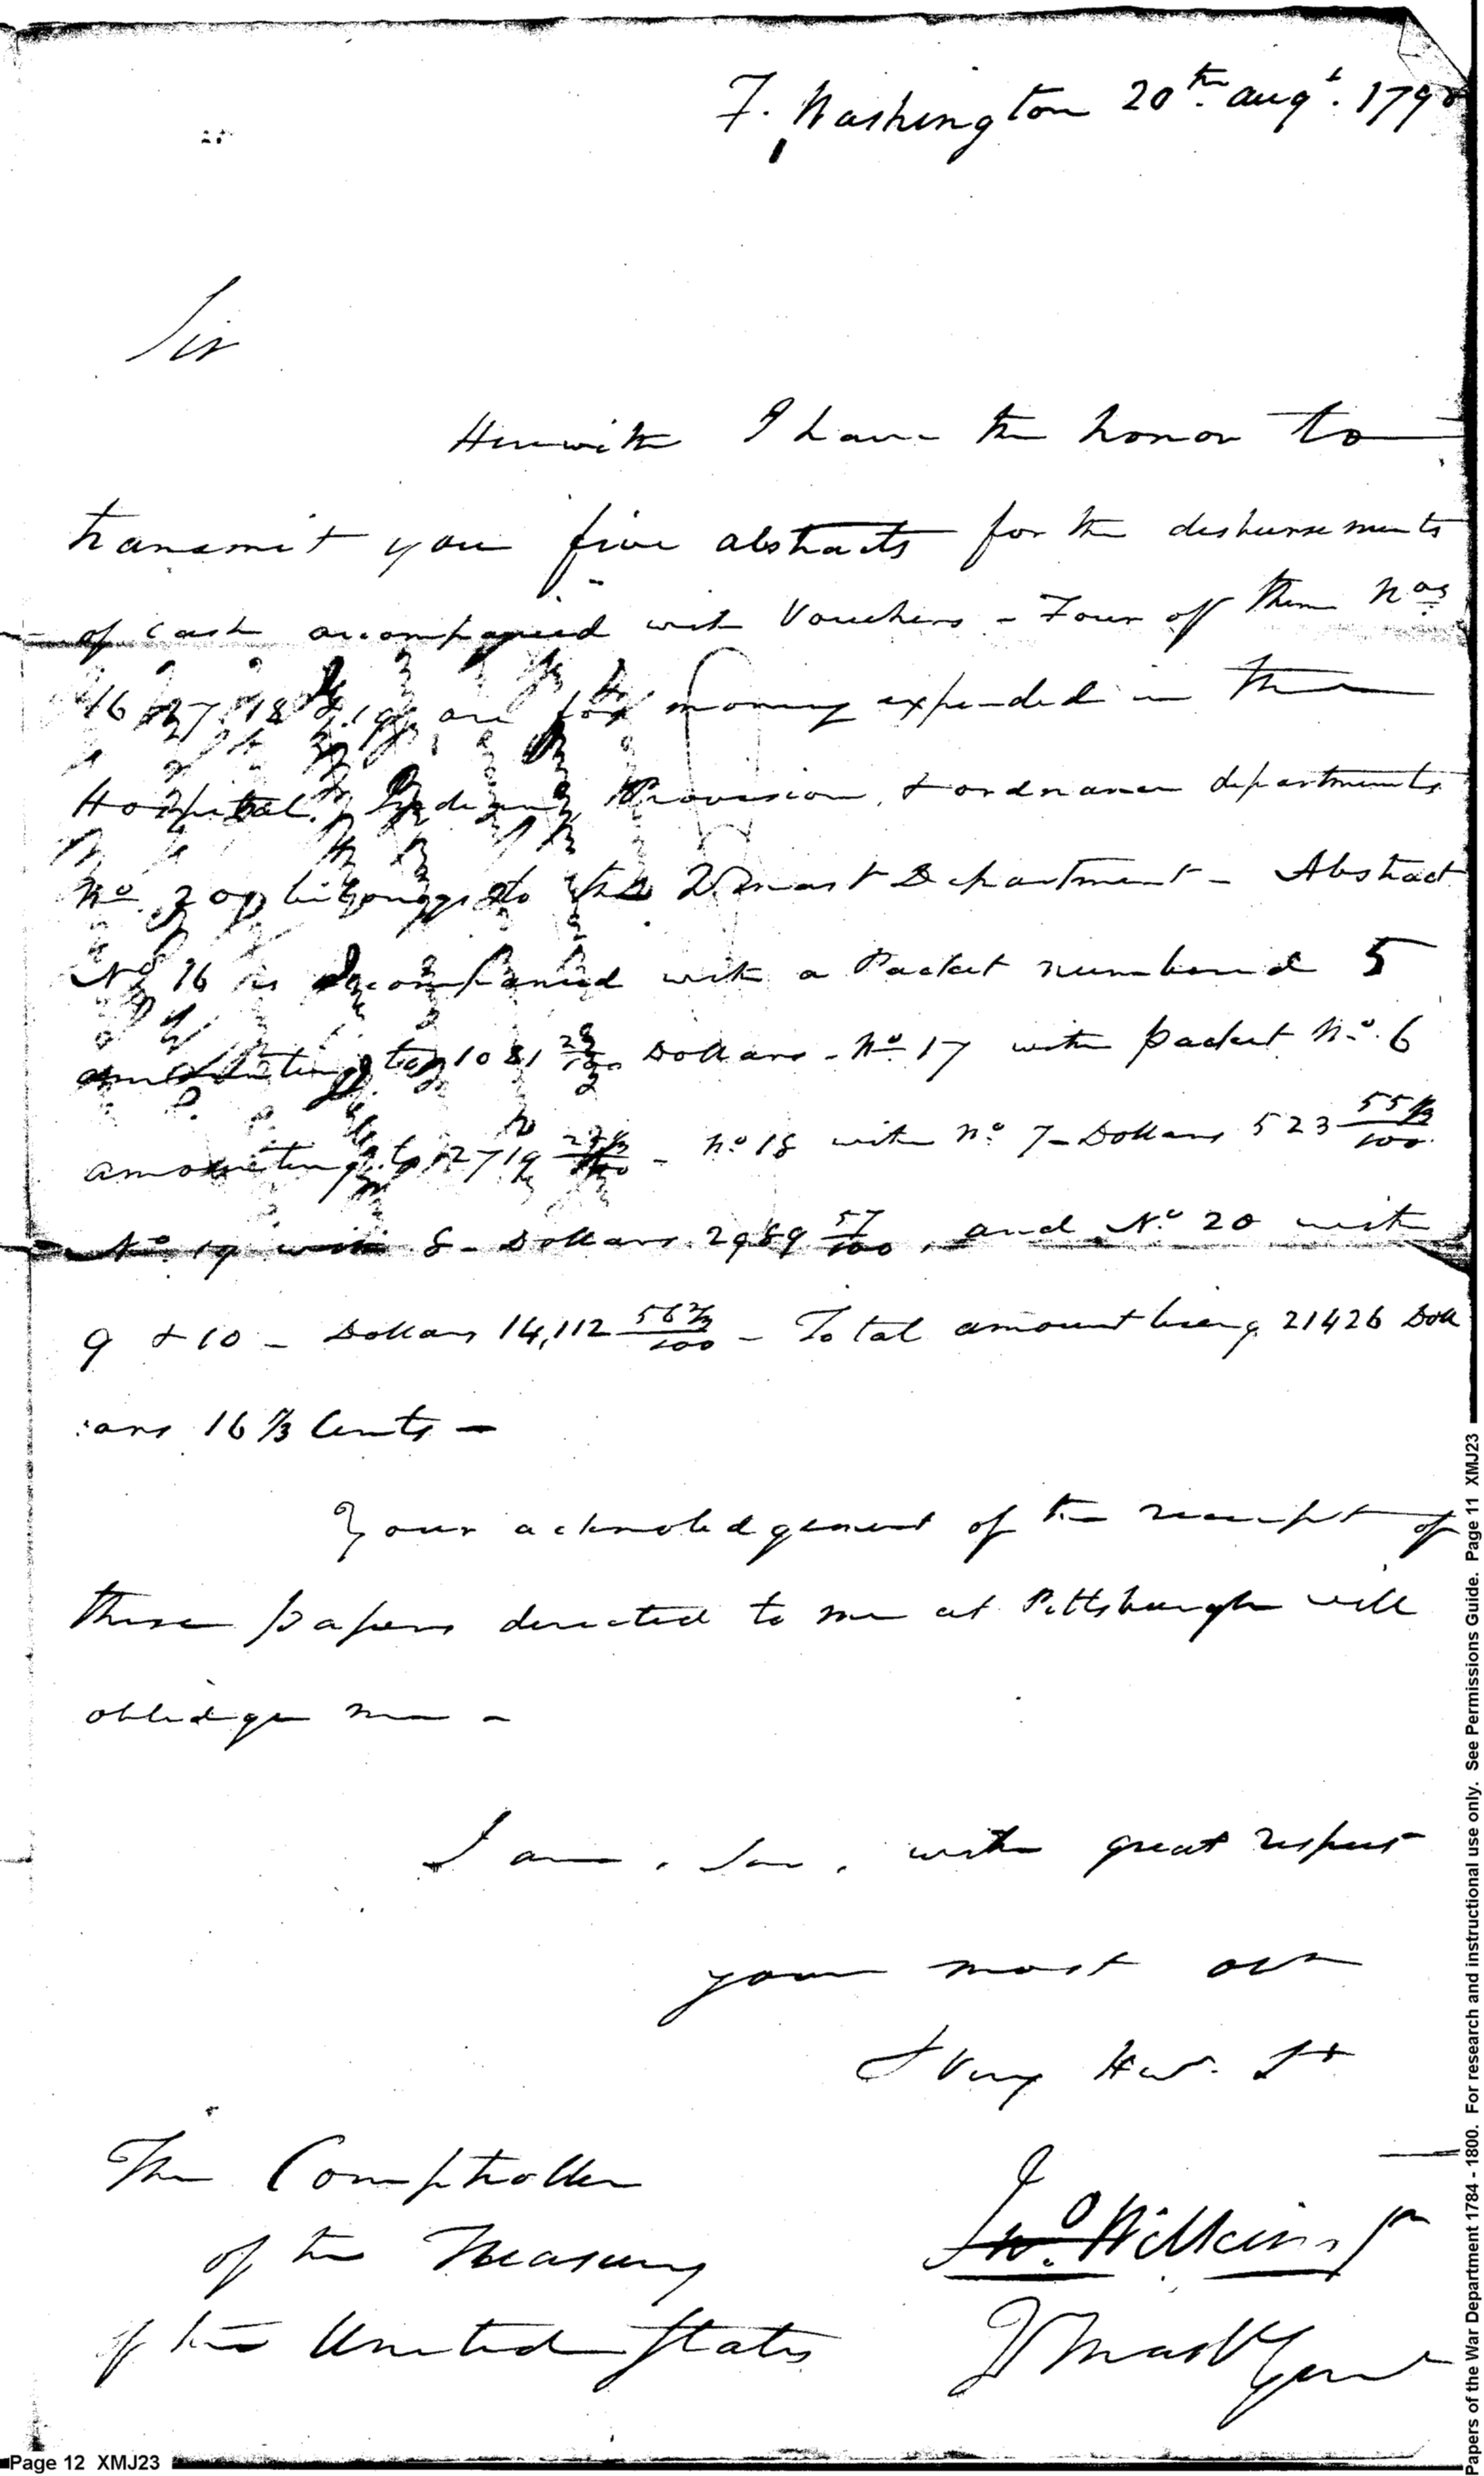 F. Washington 20th. augt. 179
Sir
Herewith I have the honor to
transmit you five abstracts for the disbursements
of cash accompanied with Vouchers - Four of them Nos
16 17 18 & 19, are for money expended in the
Hospital, Indian, Provision, & ordnance departments
No. 20 belongs to the Qr. mast Department - Abstract
No 16 is accompanied with a Packet numbered 5
amounting to 1081 Dollars - No 17 with packet No. 6
amounting to 2719 - No 18 with No. 7 - Dollars 523 55 1/3/100
No 19 with 8 - Dollars 2989 57/100, and No. 20 with
9 & 10 - Dollars 14,112 56 2/3/100 - Total amount being 21426 Doll
:ars 16 1/3 Cents -
Your acknoledgement of the receipt of
these papers directed to me at Pittsburgh will
obledge me -
I am, Sir, with great respect
your most obt
& Very Hul. St
The Comptroller
of the Treasury
of the United States
Jno. Wilkins Jr
Q Mast Genl
Page 12 XMJ23
Papers of the War Department 1784 - 1800. For research and instructional use only. See Permissions Guide. Page 11 XMJ23